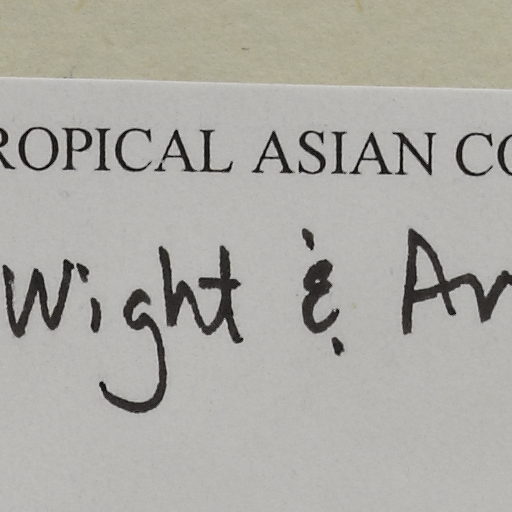 ROPICAL ASIAN CO
Wight & Ar